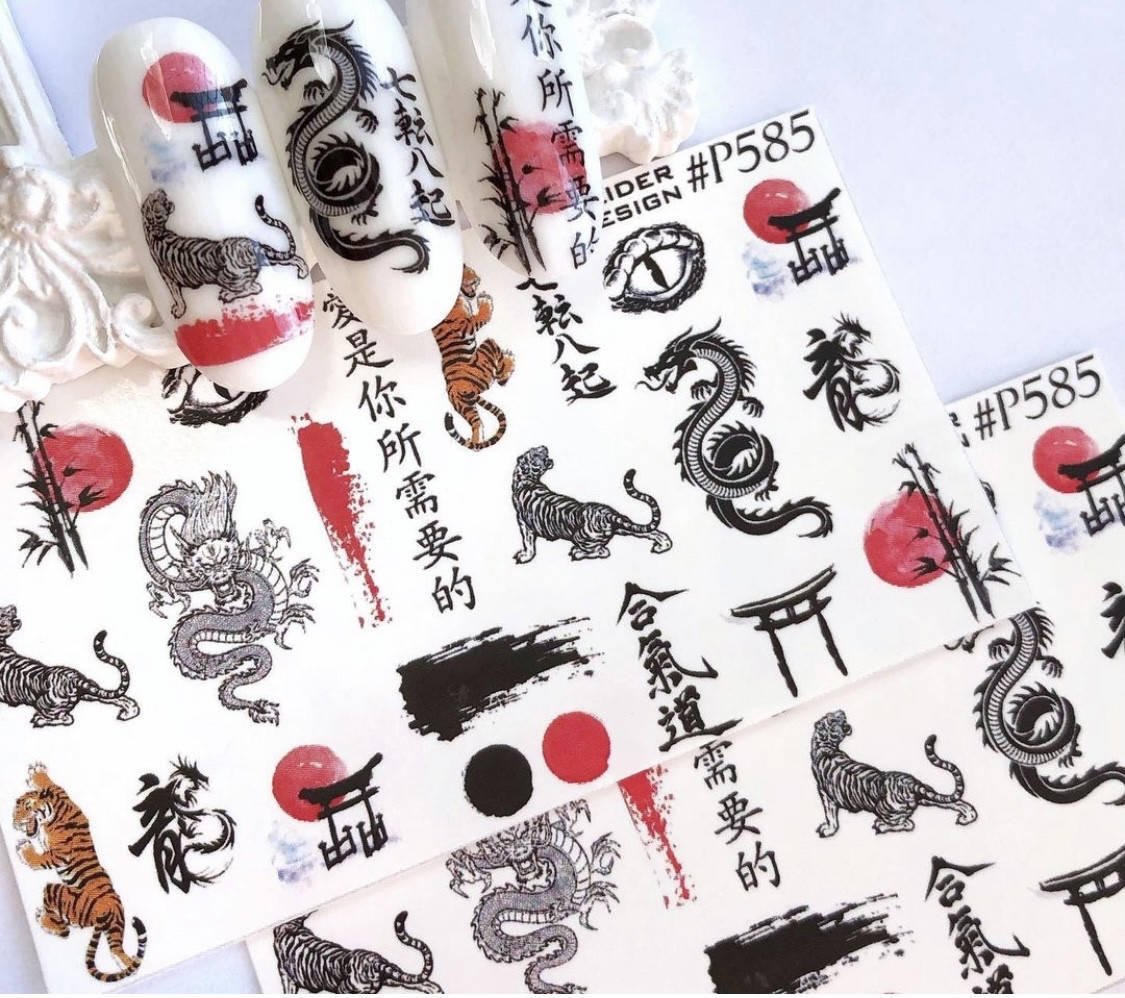 七転八起
你所需要的
IDER
ESIGN
#P585
愛是你所需要的
七転八起
龍
合氣道
龍
#P585
需要的
合氣道